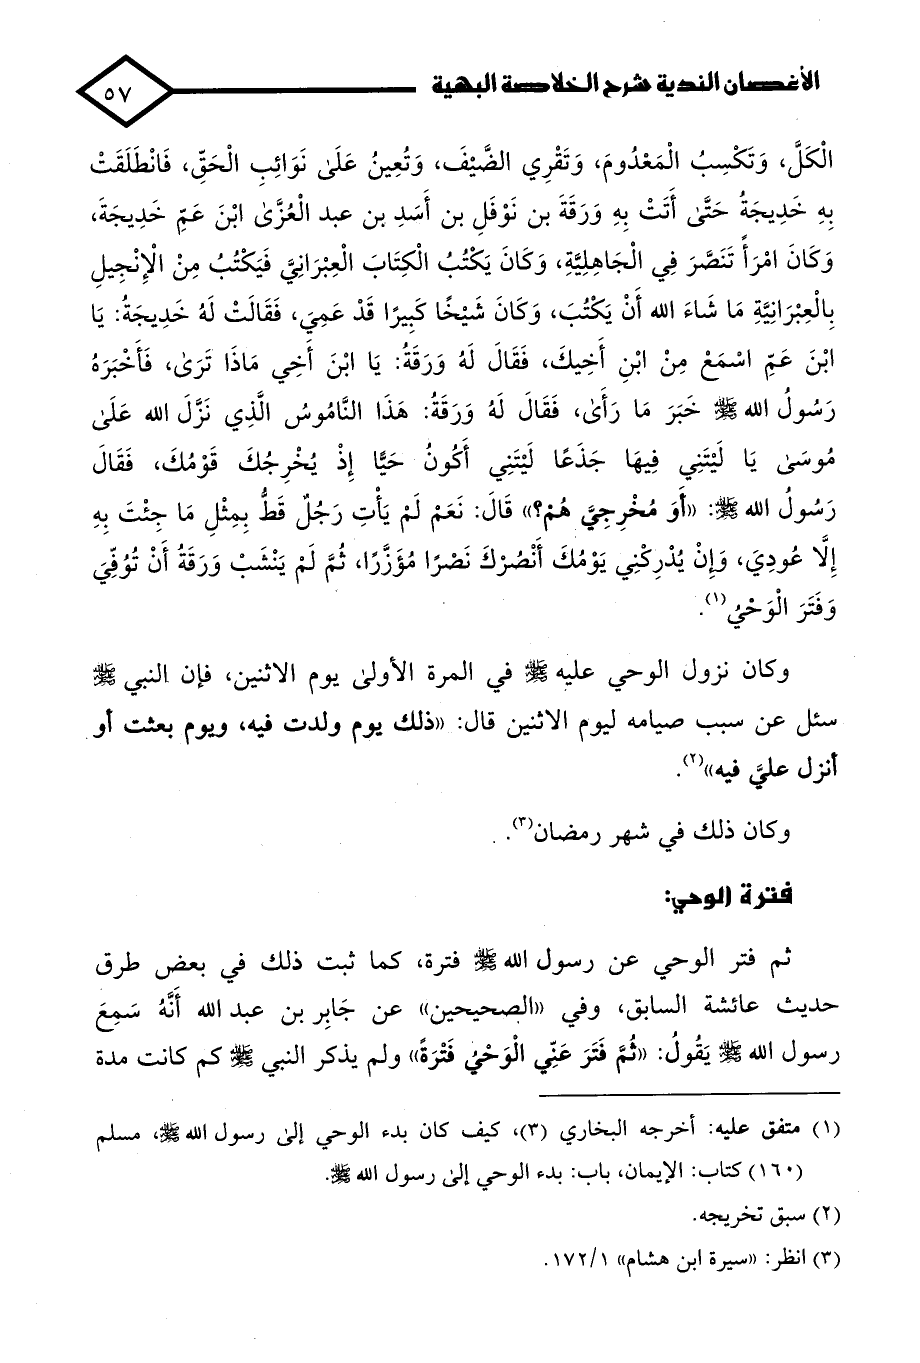 الأغصان الندية شرح الخلاصة البهية
٥٧
الْكَلَّ، وَتَكْسِبُ الْمَعْدُومَ، وَتَقْرِي الضَّيْفَ، وَتُعِينُ عَلَىٰ نَوَائِبِ الْحَقِّ، فَانْطَلَقَتْ
بِهِ خَدِيجَةُ حَتَّىٰ أَتَتْ بِهِ وَرَقَةَ بن نَوْفَلِ بن أَسَدِ بن عبد الْعُزَّىٰ ابْنَ عَمِّ خَدِيجَةَ،
وَكَانَ امْرَأً تَنَصَّرَ فِي الْجَاهِلِيَّةِ، وَكَانَ يَكْتُبُ الْكِتَابَ الْعِبْرَانِيَّ فَيَكْتُبُ مِنْ الْإِنْجِيلِ
بِالْعِبْرَانِيَّةِ مَا شَاءَ الله أَنْ يَكْتُبَ، وَكَانَ شَيْخًا كَبِيرًا قَدْ عَمِيَ، فَقَالَتْ لَهُ خَدِيجَةُ: يَا
ابْنَ عَمِّ اسْمَعْ مِنْ ابْنِ أَخِيكَ، فَقَالَ لَهُ وَرَقَةُ: يَا ابْنَ أَخِي مَاذَا تَرَىٰ، فَأَخْبَرَهُ
رَسُولُ الله ﷺ خَبَرَ مَا رَأَىٰ، فَقَالَ لَهُ وَرَقَةُ: هَذَا النَّامُوسُ الَّذِي نَزَّلَ الله عَلَىٰ
مُوسَىٰ يَا لَيْتَنِي فِيهَا جَذَعًا لَيْتَنِي أَكُونُ حَيًّا إِذْ يُخْرِجُكَ قَوْمُكَ، فَقَالَ
رَسُولُ الله ﷺ: «أَوَ مُخْرِجِيَّ هُمْ؟» قَالَ: نَعَمْ لَمْ يَأْتِ رَجُلٌ قَطُّ بِمِثْلِ مَا جِئْتَ بِهِ
إِلَّا عُودِيَ، وَإِنْ يُدْرِكْنِي يَوْمُكَ أَنْصُرْكَ نَصْرًا مُؤَزَّرًا، ثُمَّ لَمْ يَنْشَبْ وَرَقَةُ أَنْ تُوُفِّيَ
وَفَتَرَ الْوَحْيُ(١).
وكان نزول الوحي عليه ﷺ في المرة الأولىٰ يوم الاثنين، فإن النبي ﷺ
سئل عن سبب صيامه ليوم الاثنين قال: «ذلك يوم ولدت فيه، ويوم بعثت أو
أنزل عليَّ فيه»(٢).
وكان ذلك في شهر رمضان(٣).
فترة الوحي:
ثم فتر الوحي عن رسول الله ﷺ فترة، كما ثبت ذلك في بعض طرق
حديث عائشة السابق، وفي «الصحيحين» عن جَابِر بن عبد الله أَنَّهُ سَمِعَ
رسول الله ﷺ يَقُولُ: «ثُمَّ فَتَرَ عَنِّي الْوَحْيُ فَتْرَةً» ولم يذكر النبي ﷺ كم كانت مدة
(١) متفق عليه: أخرجه البخاري (٣)، كيف كان بدء الوحي إلىٰ رسول الله ﷺ، مسلم
(١٦٠) كتاب: الإيمان، باب: بدء الوحي إلىٰ رسول الله ﷺ.
(٢) سبق تخريجه.
(٣) انظر: «سيرة ابن هشام» ١/ ١٧٢.